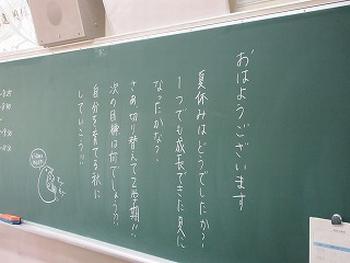 おはようございます
夏休みはどうでしたか?
1つでも成長できた夏に
なったかな?
さあ切り替えて2学期!!
次の目標は何でしょう??
自分を育てる秋に
していこう!!